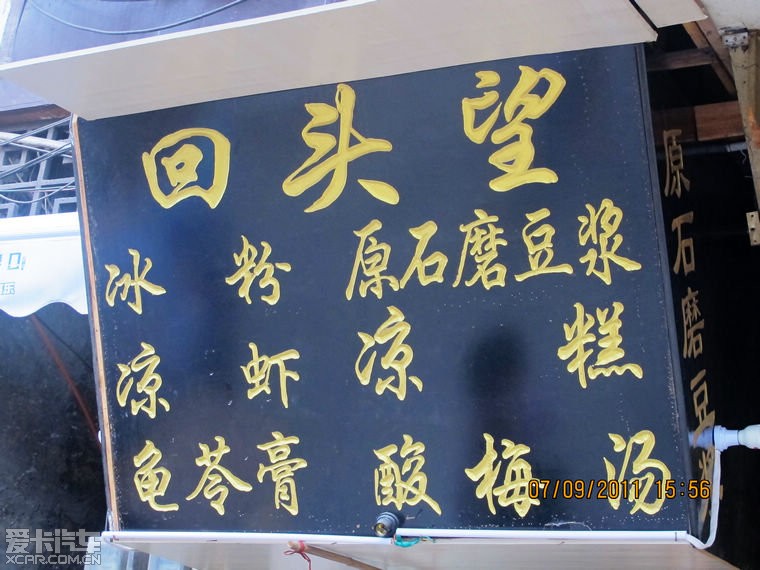 回头望
冰粉 原石磨豆浆
凉虾 凉糕
龟苓膏 酸梅汤
原石磨豆浆
07/09/2011 15:56
爱卡汽车
XCAR.COM.CN